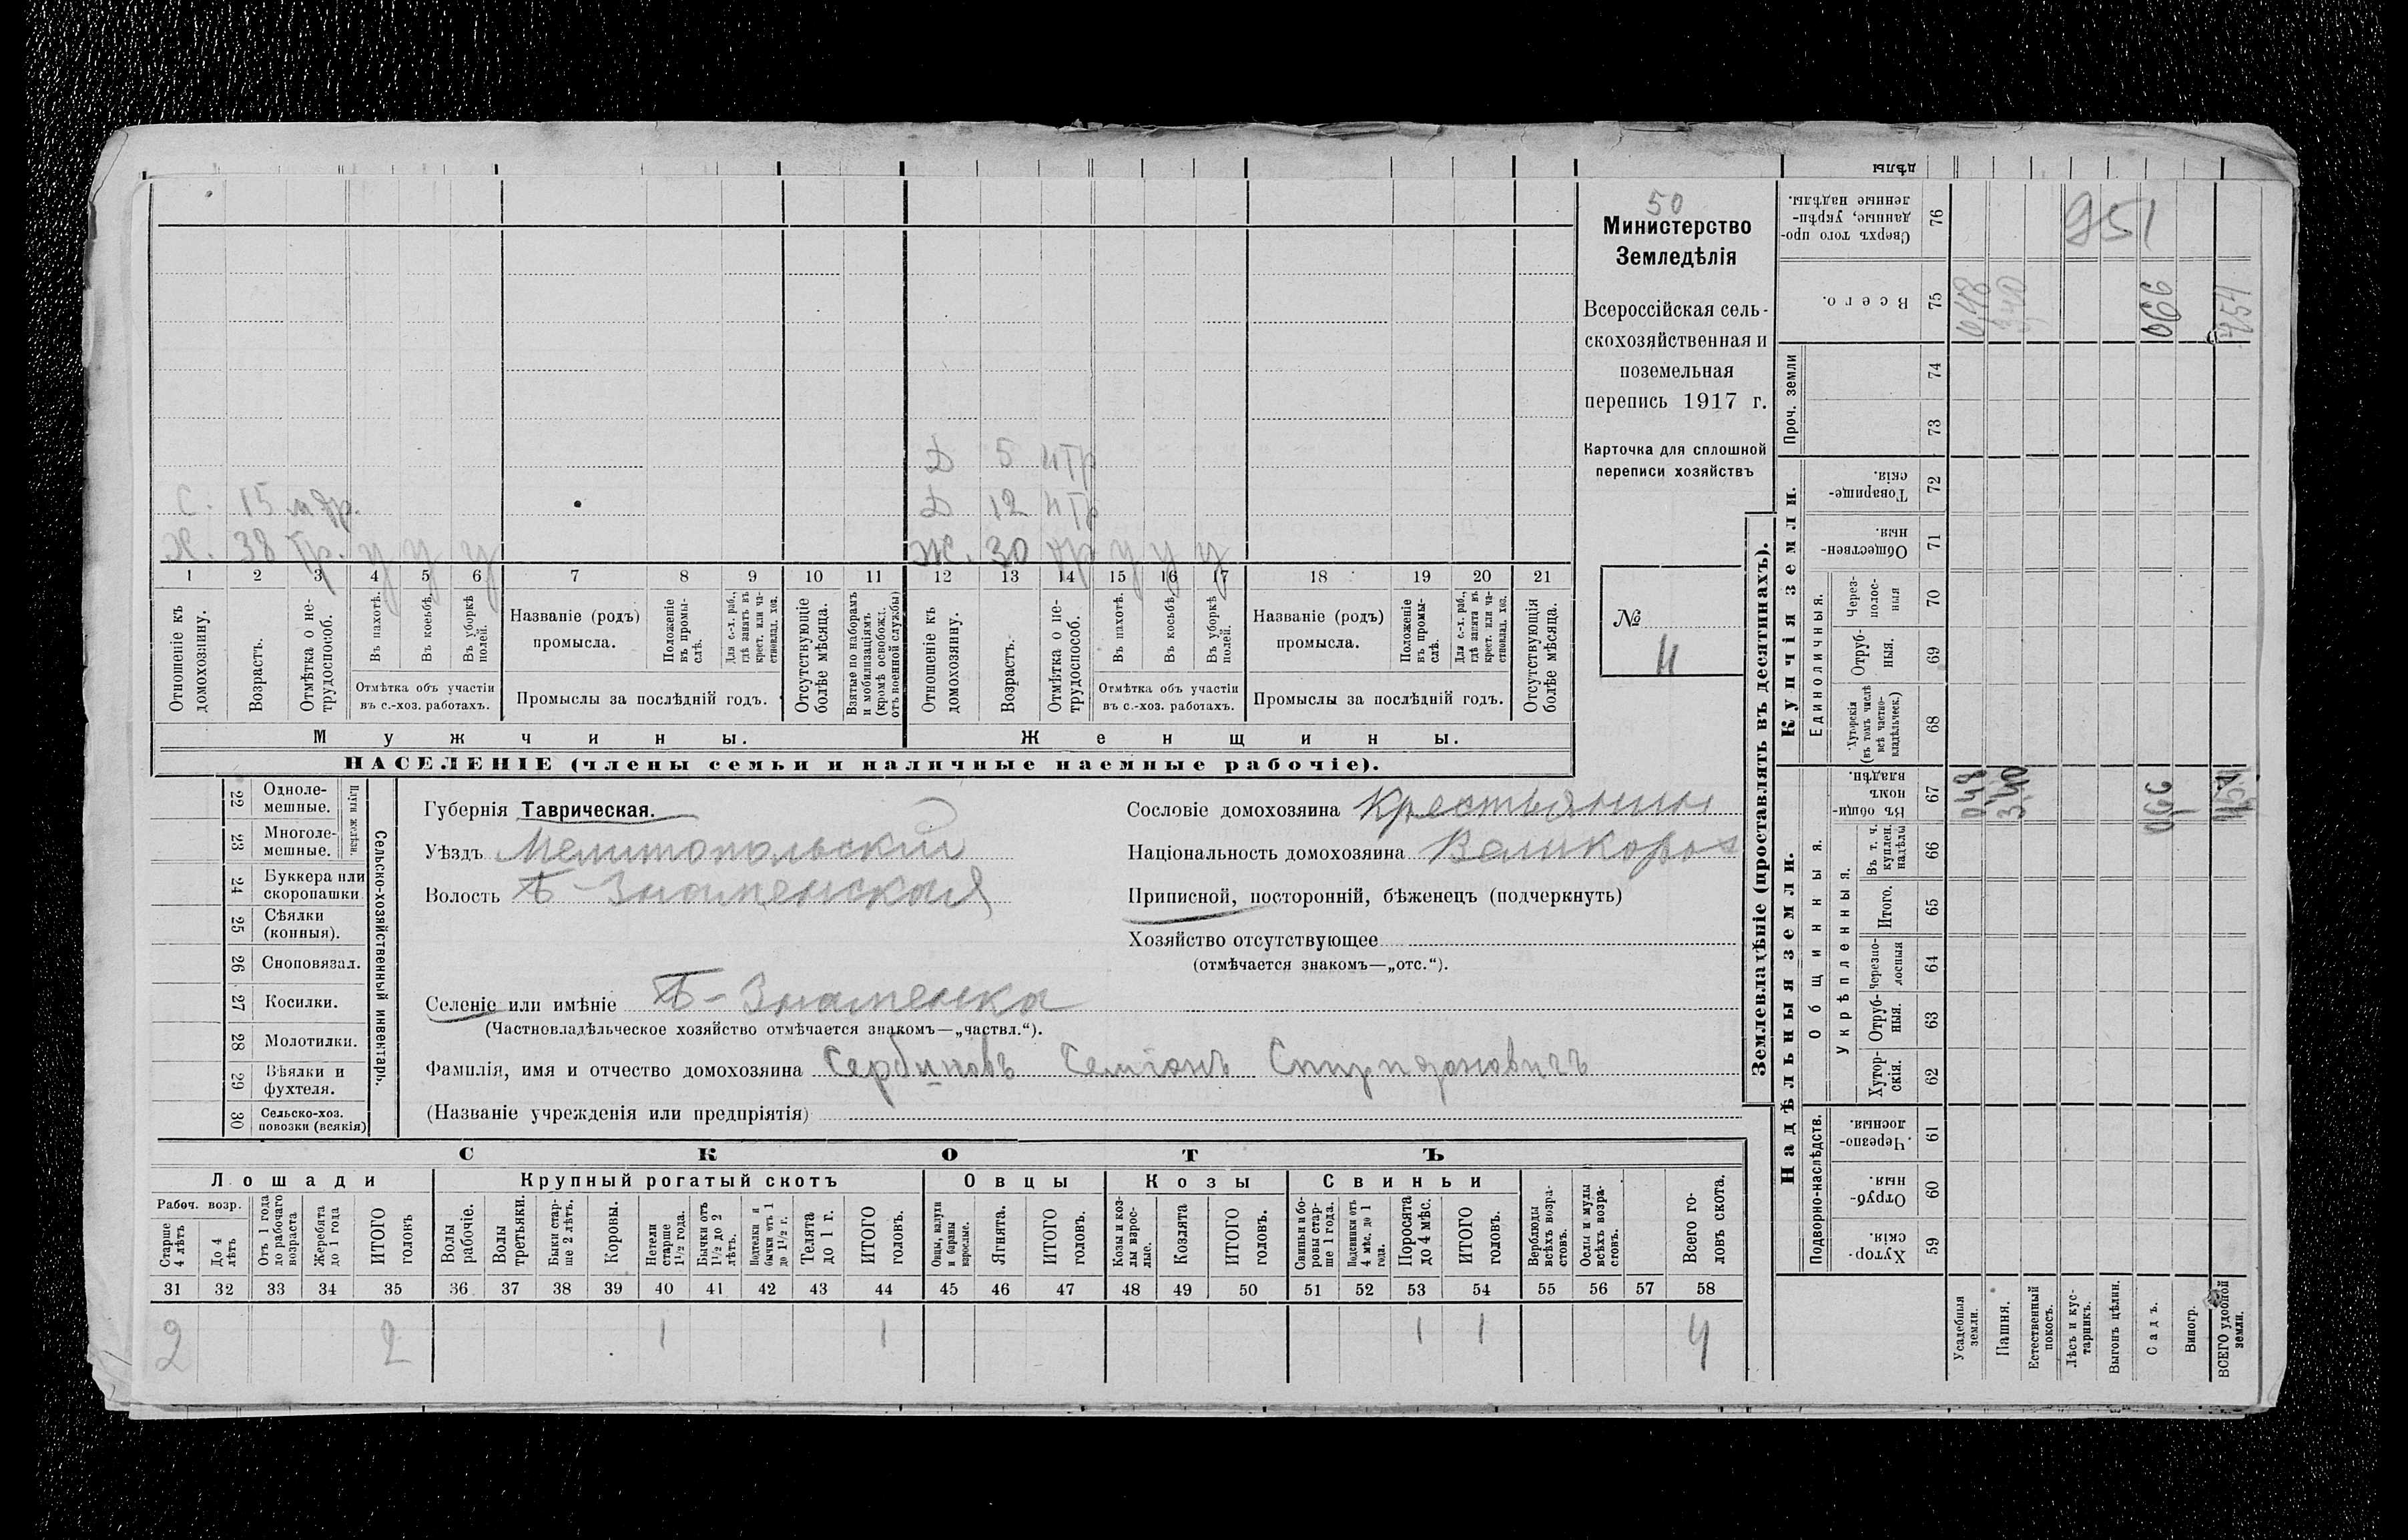 50
Министерство
Земледѣлія
Всероссійская сель-
скохозяйственная и
поземельная
перепись 1917 г.
Карточка для сплошной
переписи хозяйствъ
№
Д 5 нтр
С. 15 мтр. Д 12 нтр
Х. 38 тр. у у у Ж. 30 тр у у у
1 2 3 4 5 6 7 8 9 10 11 12 13 14 15 16 17 18 19 20 21
Отношеніе къ домохозяину.
Возрастъ.
Отмѣтка о не-трудоспособ.
Въ пахотѣ.
Въ косьбѣ.
Въ уборкѣ полей.
Отмѣтка объ участіи
въ с.-хоз. работахъ.
Названіе (родъ)
промысла.
Положеніе въ промы-слѣ.
Для с.-х. раб., гдѣ занятъ въ крест. или ча-стновлад. хоз.
Промыслы за послѣдній годъ.
Отсутствующіе болѣе мѣсяца.
Взятые по наборамъ и мобилизаціямъ (кромѣ освобожд. отъ военной службы)
Отношеніе къ домохозяину.
Возрастъ.
Отмѣтка о не-трудоспособ.
Въ пахотѣ.
Въ косьбѣ.
Въ уборкѣ полей.
Отмѣтка объ участіи
въ с.-хоз. работахъ.
Названіе (родъ)
промысла.
Положеніе въ промы-слѣ.
Для с.-х. раб., гдѣ занята въ крест. или ча-стновлад. хоз.
Промыслы за послѣдній годъ.
Отсутствующія болѣе мѣсяца.
Мужчины. Женщины.
НАСЕЛЕНІЕ (члены семьи и наличные наемные рабочіе).
Сельско-хозяйственный инвентарь.
Плуги желѣзн.
22 Одноле-мешные.
23 Многоле-мешные.
24 Буккера или скоропашки
25 Сѣялки (конныя).
26 Сноповязал.
27 Косилки.
28 Молотилки.
29 Вѣялки и фухтеля.
30 Сельско-хоз. повозки (всякія)
Губернія Таврическая.
Уѣздъ Мелитопольскій
Волость Б-Знаменская
Селеніе или имѣніе Б-Знаменка
(Частновладѣльческое хозяйство отмѣчается знакомъ—„частвл.“).
Сословіе домохозяина Крестьянин
Національность домохозяина Великорос
Приписной, посторонній, бѣженецъ (подчеркнуть)
Хозяйство отсутствующее
(отмѣчается знакомъ—„отс.“).
Фамилія, имя и отчество домохозяина Сербиновъ Семіонъ Спиридоновичъ
(Названіе учрежденія или предпріятія)
СКОТЪ
Лошади Крупный рогатый скотъ Овцы Козы Свиньи
Рабоч. возр.
Старше 4 лѣтъ
До 4 лѣтъ
Отъ 1 года до рабочаго возраста
Жеребята до 1 года
ИТОГО головъ
Волы рабочіе.
Волы третьяки.
Быки стар-ше 2 лѣтъ.
Коровы.
Нетели старше 1½ года.
Бычки отъ 1½ до 2 лѣтъ.
Подтелки и бычки отъ 1 до 1½ г.
Телята до 1 г.
ИТОГО головъ.
Овцы, валухи и бараны взрослые.
Ягнята.
ИТОГО головъ.
Козы и коз-лы взрос-лые.
Козлята
ИТОГО головъ.
Свиньи и бо-ровы стар-ше 1 года.
Подсвинки отъ 4 мѣс. до 1 года.
Поросята до 4 мѣс.
ИТОГО головъ.
Верблюды всѣхъ возра-стовъ.
Ослы и мулы всѣхъ возра-стовъ.
Всего го-ловъ скота.
31 32 33 34 35 36 37 38 39 40 41 42 43 44 45 46 47 48 49 50 51 52 53 54 55 56 57 58
2 2 1 1 1 1 4
Землевладѣніе (проставлять въ десятинахъ).
Надѣльныя земли.
Купчія земли.
Проч. земли
Подворно-наслѣдств.
Общинныя.
Укрѣпленныя.
Единоличныя.
дѣлы
Сверхъ того про-данные, укрѣп-ленные надѣлы. 76 951
Всего. 75 3,40 066
74
73
Товарище-скія. 72
Обществен-ныя. 71
Через-полос-ныя 70
Отруб-ныя. 69
Хуторскія (въ томъ числѣ всѣ частно-владѣльческ.) 68
Въ общин-номъ владѣн. 67 048 3,40 066
Въ т. ч. куплен. надѣлы 66
Итого. 65
Черезпо-лосныя 64
Отруб-ныя. 63
Хутор-скія. 62
Черезпо-лосныя. 61
Отруб-ныя. 60
Хутор-скія. 59
Усадебныя земли.
Пашня.
Естественный покосъ.
Лѣсъ и кус-тарникъ.
Выгонъ цѣлин.
Садъ.
Виногр.
ВСЕГО удобной земли.